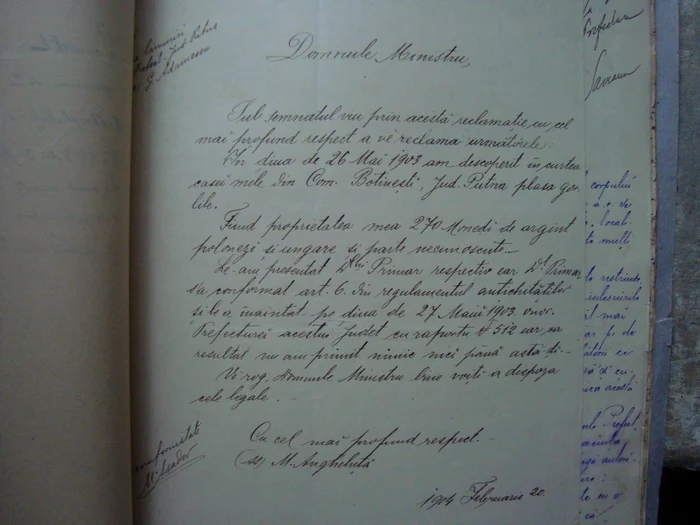 lămuriri
Jud. Putna
Adamescu
Domnule Ministru,
Sub semnatul viu prin acestă reclamație cu cel
mai profund respect a vĕ reclama urmātōrele:
In diua de 26 Mai 1903 am descoperit in curtea
casii mele din Com. Botinești, Jud. Putna plasa Gâr-
lile.
Fiind proprietatea mea 270 Monedi de argint
poloneze și ungare și parte necunoscute –
Le-am presentat Dlui Primar respectiv ear Dl Primar
sa conformat art. 6. din regulamentul antichităților
și le a inaintat pe diua de 27 Maiŭ 1903. onor.
Prefecturei acestui Judet cu raportu # 512 iar ca
resultat nu am primit nimic nici pănă astă di. –
Vĕ rog Domnule Ministru bine voiți a dispoza
cele legale. –
Cu cel mai profund respect. –
(ss) M. Angheluță
1904 Februarie 20.
conformitate
corpului
a.c. de
locali-
mulți
restrînge
mai
ar fi de
ce
să și cu
acestă
Prefect,